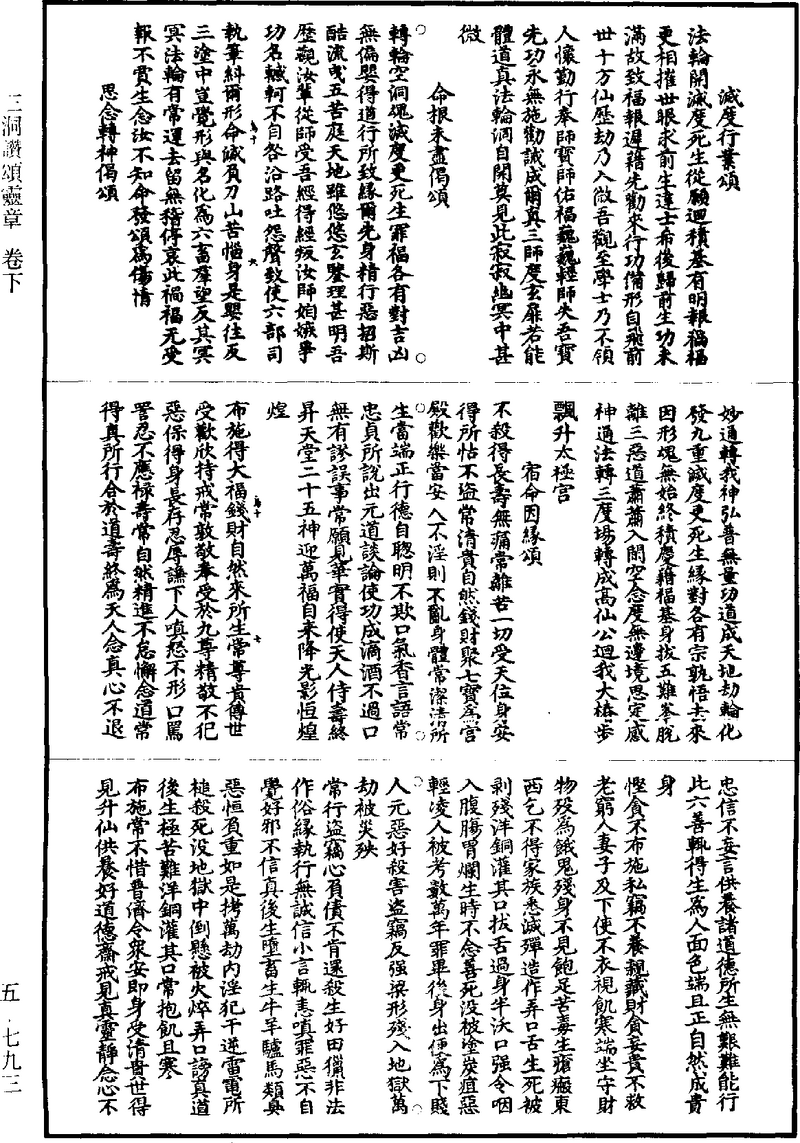 滅度行業頌
法輪開滅度死生從願迴積基有明報禍福
更相摧世眼求前生達士希後歸前生功未
滿故致福報遲藉先勸來行功備形自飛前
世十方仙歷劫乃入微吾觀至學士乃不領
人懷勤行奉師寶師佑福巍巍輕師失吾寶
先功永無施勸誡成爾真三師度玄扉若能
體道真法輪洞自開莫見此寂寂幽冥中甚
微
命根未盡偈頌
轉輪空洞魂滅度更死生罪福各有對吉凶
無偏嬰得道行所致緣爾先身精行惡招斯
酷流曳五苦庭天地雖悠悠玄鑒理甚明吾
歷觀汝輩從師受吾經得經叛汝師妬嫉爭
功名轗軻不自咎沿路吐怨聲致使六部司
執筆糾爾形命誡負刀山苦惱身是嬰往反
三塗中豈覺形與名化為六畜羣望反其冥
冥法輪有常運去留無稽停哀此禍福元受
報不貰生愈汝不知命發頌為傷情
思念轉神偈頌
妙通轉我神弘普無量功道成天地劫輪化
發九重滅度更死生緣對各有宗孰悟去來
因形魂無始終積慶藉福基身拔五難峯脫
離三惡道蕭蕭入閑空念度無邊境思定感
神通法轉三度場轉成高仙公迴我大椿步
飄升太極宮
宿命因緣頌
不殺得長壽無痛常離苦一切受天位身安
得所怙不盜常清貴自然錢財聚七寶為宮
殿歡樂當安入不淫則不亂身體常潔清所
生當端正行德自聰明不欺口氣香言語常
忠貞所說出元道談論使功成滴酒不過口
無有謬誤事常願見華實得使天人侍壽終
昇天堂二十五神迎萬福自來降光影恒煌
煌
布施得大福錢財自然來所生常尊貴傳世
受歡欣持戒常敦敬奉受於九尊精敬不犯
惡保得身長存忍辱謙下人嗔怒不形口罵
詈忍不應祿壽常自然精進不怠懈念道常
得真所行合於道壽終為天人念真心不退
忠信不妄言供養諸道德所生無艱難能行
此六善輒得生為人面色端且正自然成貴
身
慳貪不布施私竊不養親藏財貪妄貴不救
老窮人妻子及下使不衣視飢寒端坐守財
物歿為餓鬼殘身不見飽足苦毒生瘡癥東
西乞不得家族悉滅殫造作弄口舌生死被
剥殘洋銅灌其口拔舌過身半沃口强令咽
入腹腸胃爛生時不念善死没被塗炭疽惡
輕凌人被考數萬年罪畢後身出便為下賤
人元惡好殺害盜竊反强梁形殘入地獄萬
劫被災殃
常行盜竊心負債不肯還殺生好田獵非法
作俗緣執行無誠信小言輒恚嗔罪惡不自
覺好邪不信真後生墮畜生牛羊驢馬類臭
惡恒負重如是拷萬劫內淫犯干逆雷電所
槌殺死没地獄中倒懸被火焠弄口謗真道
後生極苦難洋銅灌其口常抱飢且寒
布施常不惜普濟令眾安即身受清貴世得
見升仙供養好道德齋戒見真靈靜念心不
三洞讚頌靈章 卷下
五・七九三